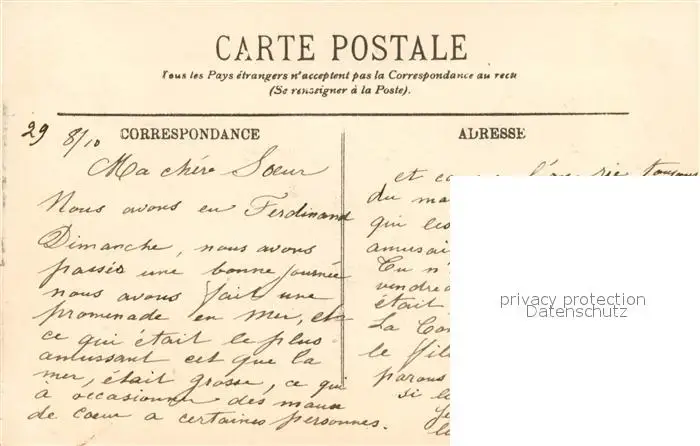 CARTE POSTALE
Tous les Pays étrangers n'acceptent pas la Correspondance au recto
(Se renseigner à la Poste).
CORRESPONDANCE
29 8/10
Ma chére Soeur
Nous avons eu Ferdinand
Dimanche, nous avons
passés une bonne journée
nous avons fait une
promenade en mer, et
ce qui était le plus
amussant cet que la
mer, était grosse, ce qui
à occasionner des maux
de coeur a certaines personnes.
ADRESSE
et toujours
du ma
qui les
amusai
Tu n'
vendred
était
La
le
parous
si le
privacy protection
Datenschutz